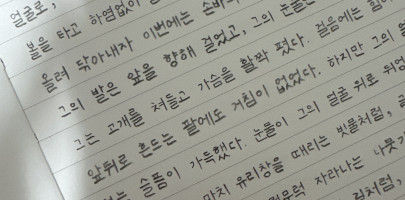 얼굴로,
볼을 타고 하염없이
올려 닦아내자 이번에는 손바
그의 발은 앞을 향해 걸었고, 그의 눈물은
그는 고개를 쳐들고 가슴을 활짝 폈다. 걸음에는 힘이
앞뒤로 흔드는 팔에도 거침이 없었다. 하지만 그의 얼
는 슬픔이 가득했다. 눈물이 그의 얼굴 뒤로 뒤엉
마치 유리창을 때리는 빗물처럼,
자라나는 나뭇가
처럼,